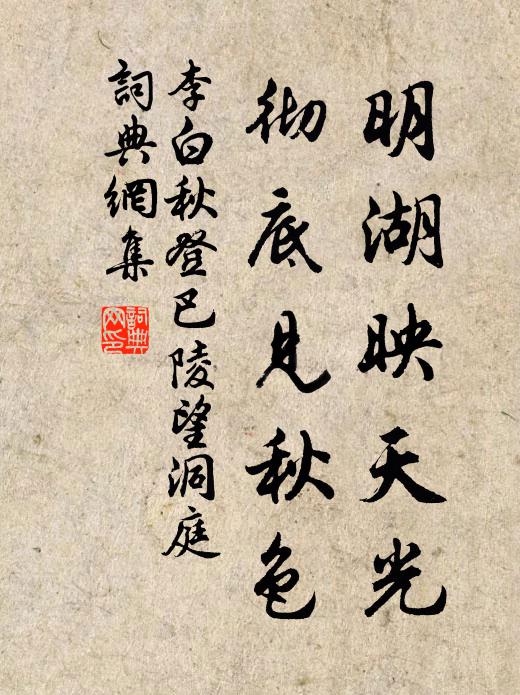 明湖映天光
彻底見秋色
李白秋登巴陵望洞庭
詞典網集
詞典
网印